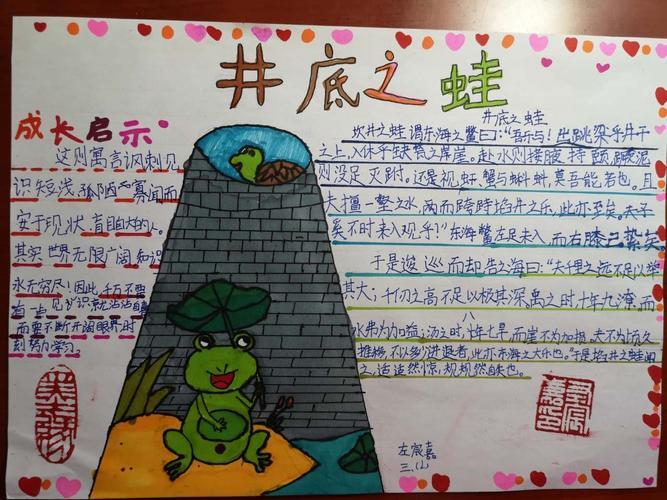 井底之蛙
成长启示
这则寓言讽刺见
识短浅,孤陋寡闻而
安于现状,盲目自大的人。
其实世界无限广阔,知识
永无穷尽!因此,千万不要
有点见识就沾沾自喜
而要不断开阔眼界,时
刻努力学习。
井底之蛙
坎井之蛙谓东海之鳖曰:“吾乐与!出跳梁乎井干
之上,入休乎缺甃之崖。赴水则接腋持颐,蹶泥
则没足灭跗。还是视,虾、蟹与蝌蚪,莫吾能若也,且
夫擅一壑之水,而跨跱埳井之乐,此亦至矣。夫子
奚不时来入观乎!”东海鳖左足未入,而右膝已絷矣。
于是逡巡而却告之海曰:“夫千里之远不足以举
其大;千仞之高不足以极其深。禹之时十年九潦,而
水弗为加益;汤之时八年七旱,而崖不为加损。夫不为顷久
推移,不以多少进退者,此亦东海之大乐也。”于是埳井之蛙闻
之,适适然惊,规规然自失也。
左宸嘉
三.(2)